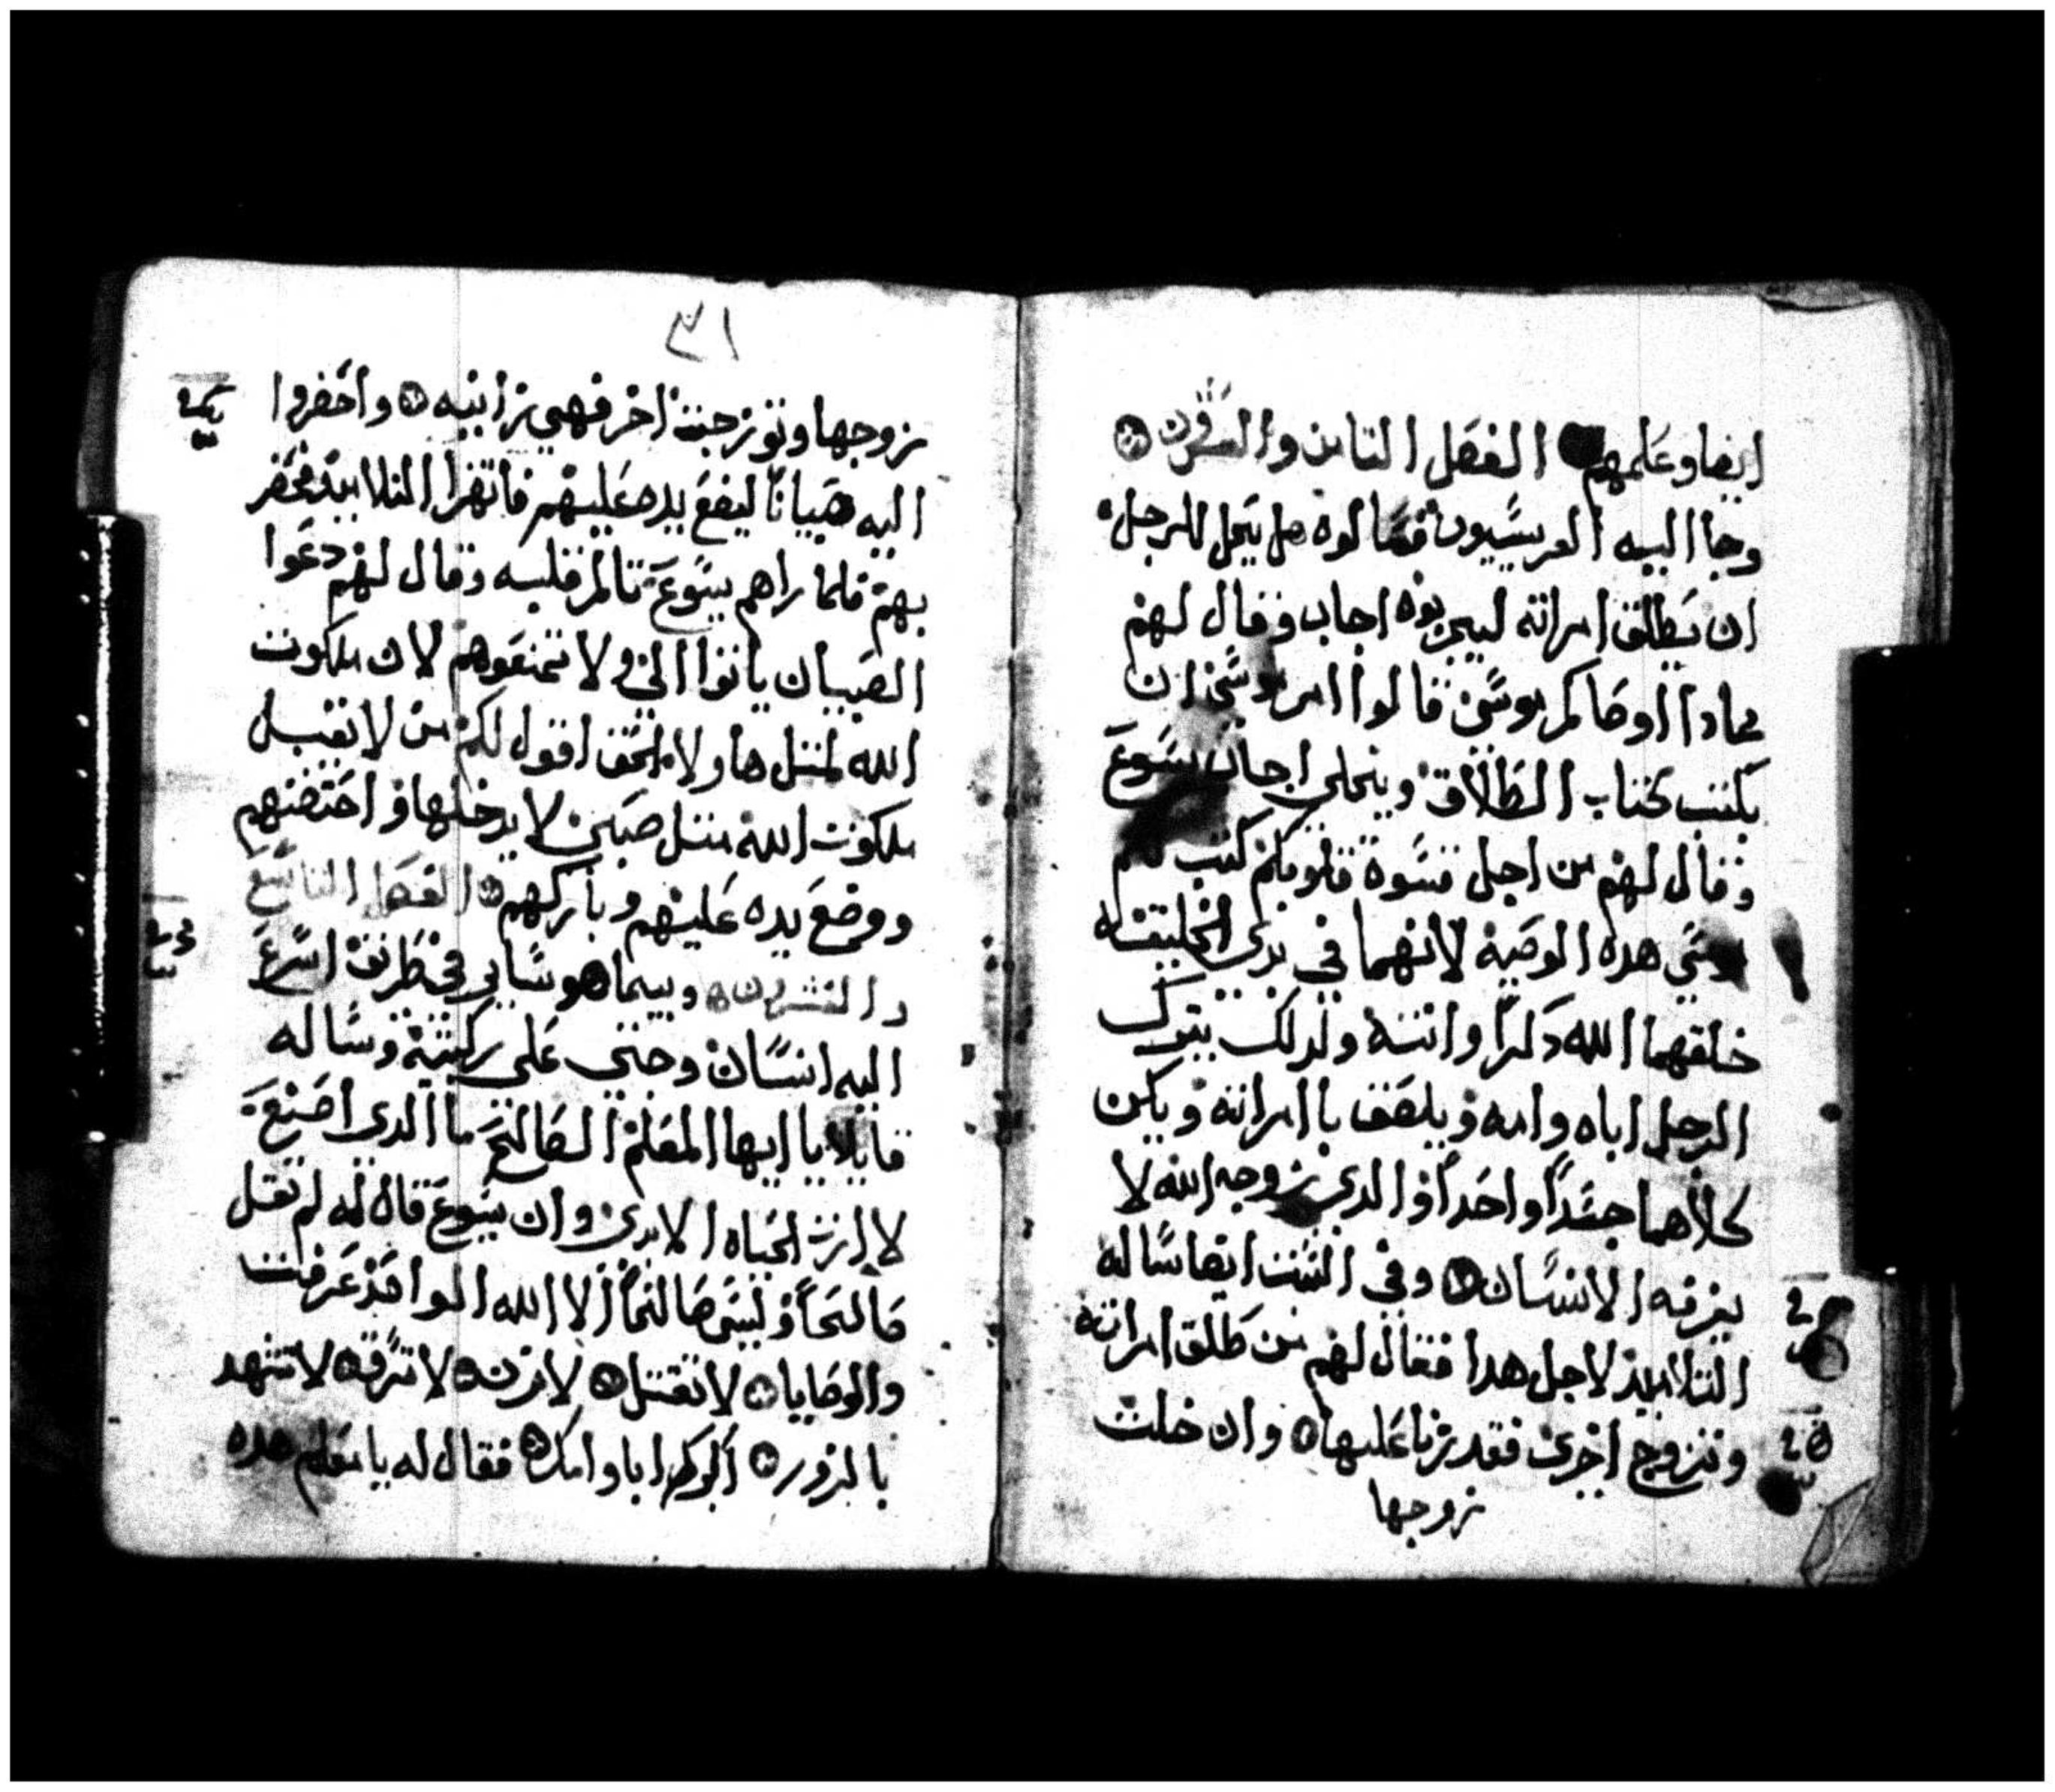 ايضا وعلمهم الفصل التامن والعشرون
وجا اليه الفريسيون فسالوه هل يحل للرجل
ان يطلق امراته ليجربوه اجاب وقال لهم
بمادا اوصاكم موسى قالوا امر موسى ان
يكتب كتاب الطلاق ويتخلي اجاب يسوع
وقال لهم من اجل قسوة قلوبكم كتب لكم
موسي هده الوصية لانهما في بدي الخليقه
خلقهما الله دكرا وانتة ولدلك يترك
الرجل اباه وامه ويلصق باامراته ويكن
كلاهما جسدا واحدا والدي زوجه الله لا
يفرقه الانسان وفي البيت ايضا ساله
التلاميذ لاجل هدا فقال لهم من طلق امراته
وتزوج اخرى فقد زنا عليها وان خلت
زوجها
٣١
زوجها وتوزجت اخر فهي زانيه واحضروا
اليه صبيانا ليضع يده عليهم فانتهر التلاميد محضر
بهم فلما راهم يسوع تالم قلبه وقال لهم دعوا
الصبيان ياتوا الي ولا تمنعوهم لان ملكوت
الله لمتل هاولا الحق اقول لكم من لا يقبل
ملكوت الله متل صبي لا يدخلها واحتضنهم
ووضع يده عليهم وباركهم الفصل التاسع
والعشرون وبينما هو ساير في طريق اسرع
اليه انسان وجتي علي ركبتية وساله
قايلا يا ايها المعلم الصالح ما الدي اصنع
لارت الحياه الابدي وان يسوع قال له لم تقل
صالحا وليس صالحا الا الله الواقد عرفت
والوصايا لا تقتل لا تزن لا تسرقه لا تشهد
بالزور اكرم اباك وامك فقال له يا معلم هده